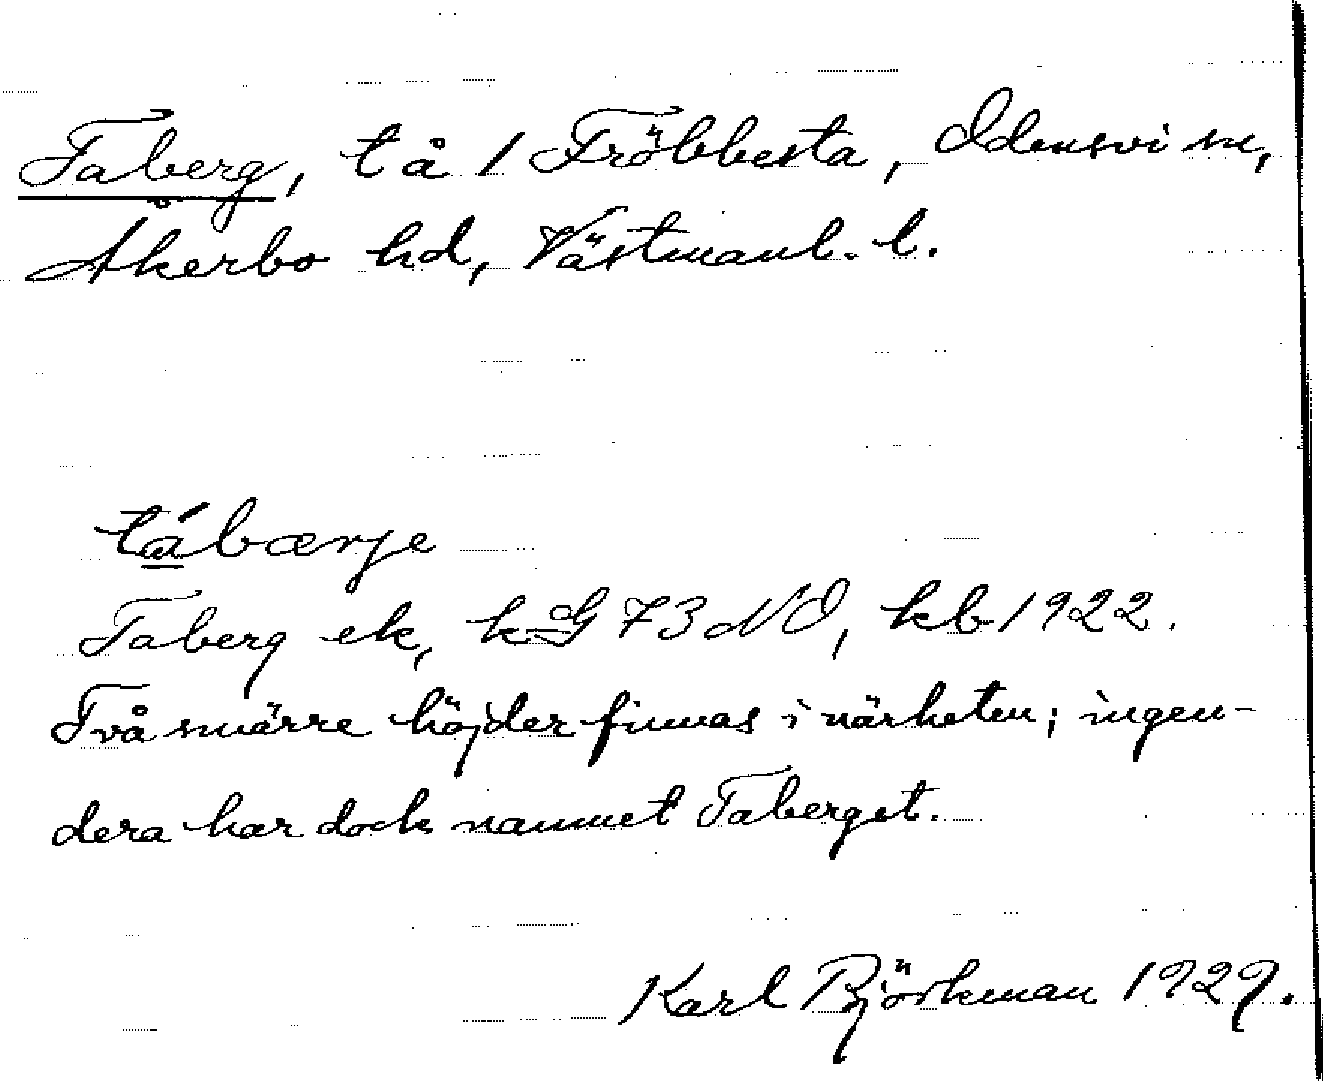 Taberg, t å 1 Fröbbesta, Odensvi sn,
Åkerbo hd, Västmanl. l.
tábærje
Taberg ek, k G 73 NO, kb 1922.
Två smärre höjder finnas i närheten; ingen-
dera har dock namnet Taberget.
Karl Björkman 1929.